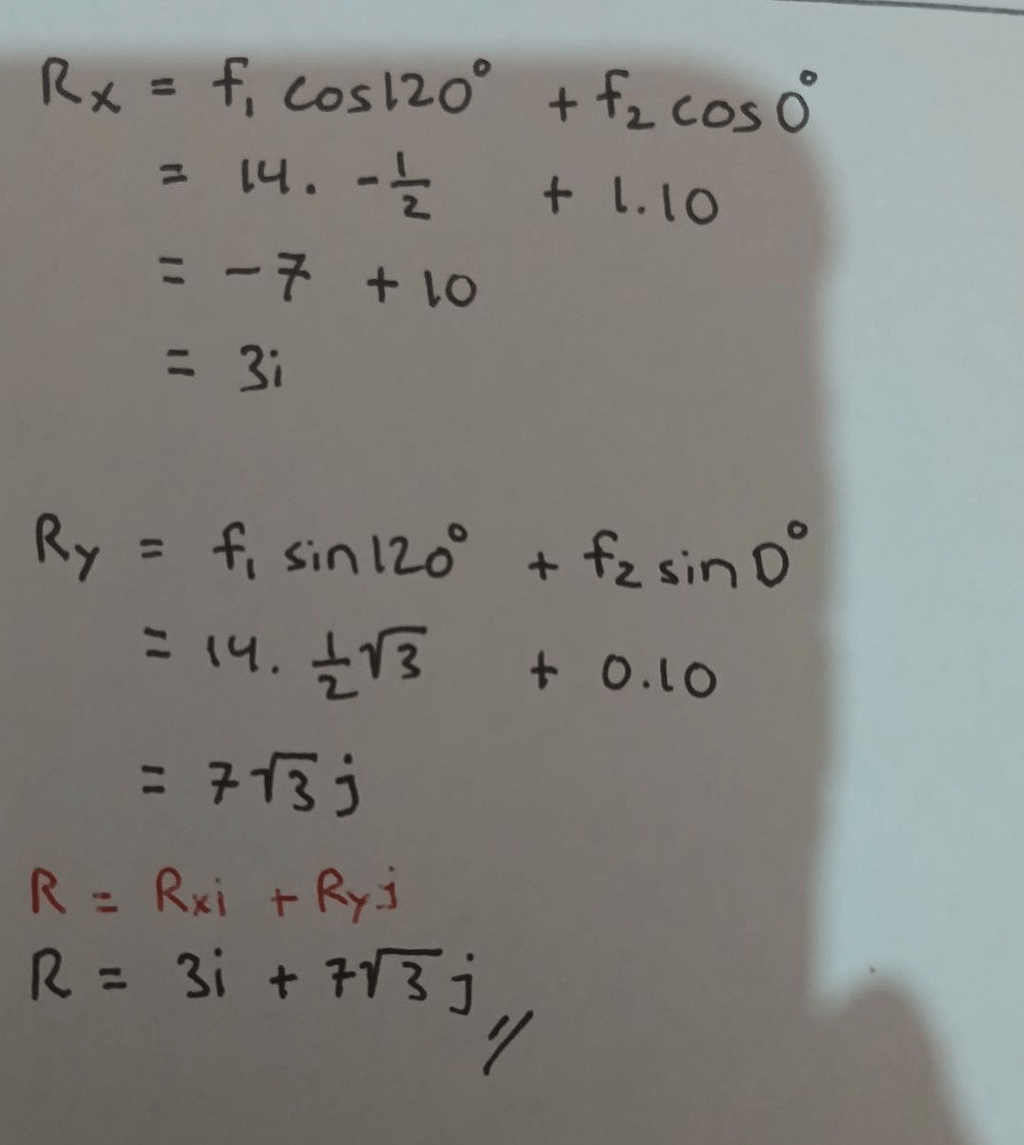 Rx = f₁ cos120° + f₂ cos0°
= 14. -½ + 1.10
= -7 + 10
= 3i
Ry = f₁ sin120° + f₂ sin0°
= 14. ½√3 + 0.10
= 7√3 j
R = Rxi + Ryj
R = 3i + 7√3 j //